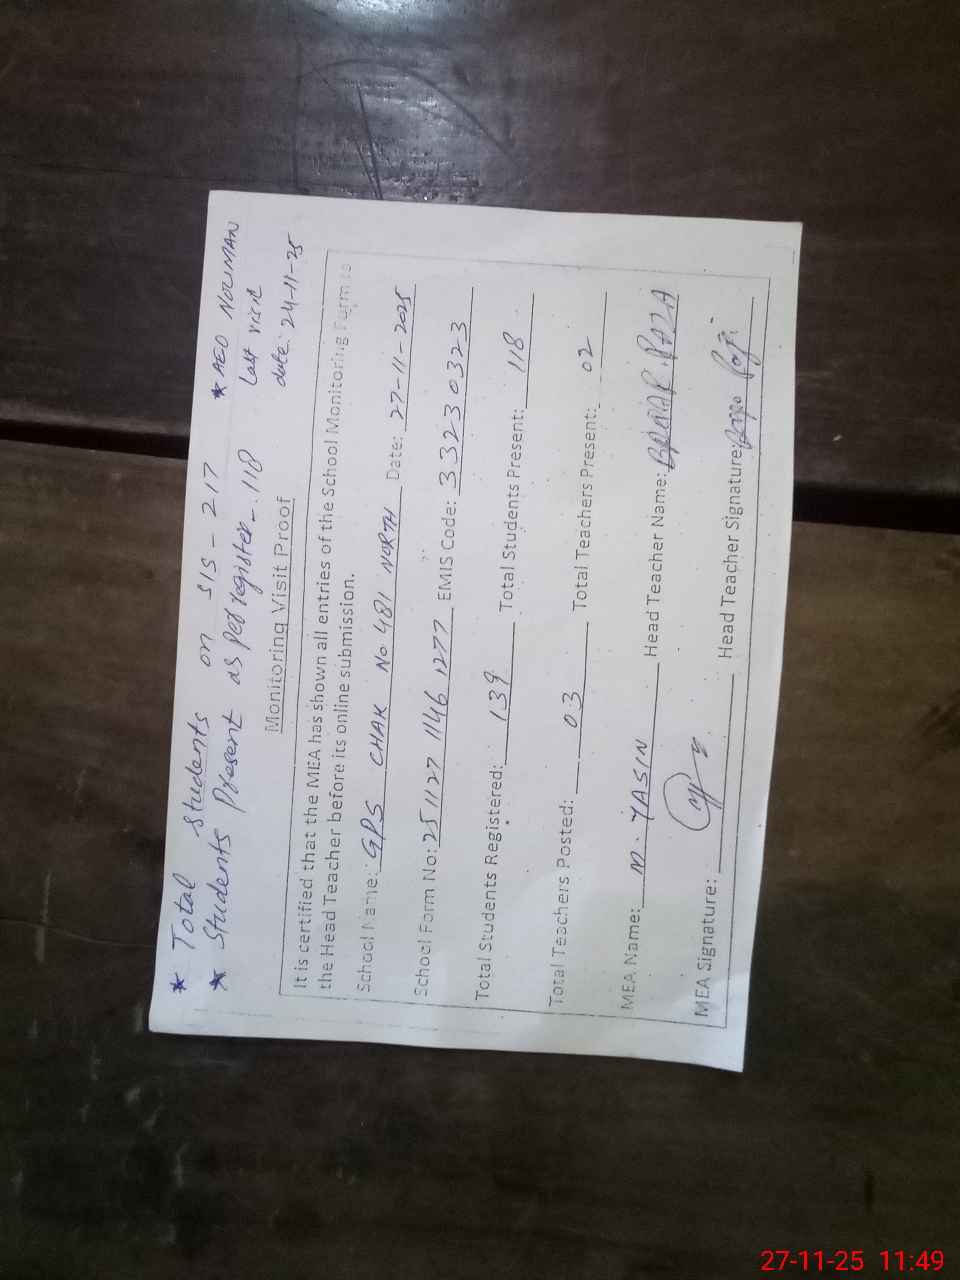 * Total Students on SIS - 217
* Students Present as per register - 118
* AEO NOUMAN
Last visit
date: 24-11-25
Monitoring Visit Proof
It is certified that the MEA has shown all entries of the School Monitoring Form to
the Head Teacher before its online submission.
School Name: GPS CHAK No 481 NORTH Date: 27-11-2025
School Form No: 251127 1146 1277 EMIS Code: 33230323
Total Students Registered: 139 Total Students Present: 118
Total Teachers Posted: 03 Total Teachers Present: 02
MEA Name: M. YASIN Head Teacher Name: RAZA
MEA Signature: Head Teacher Signature:
27-11-25 11:49